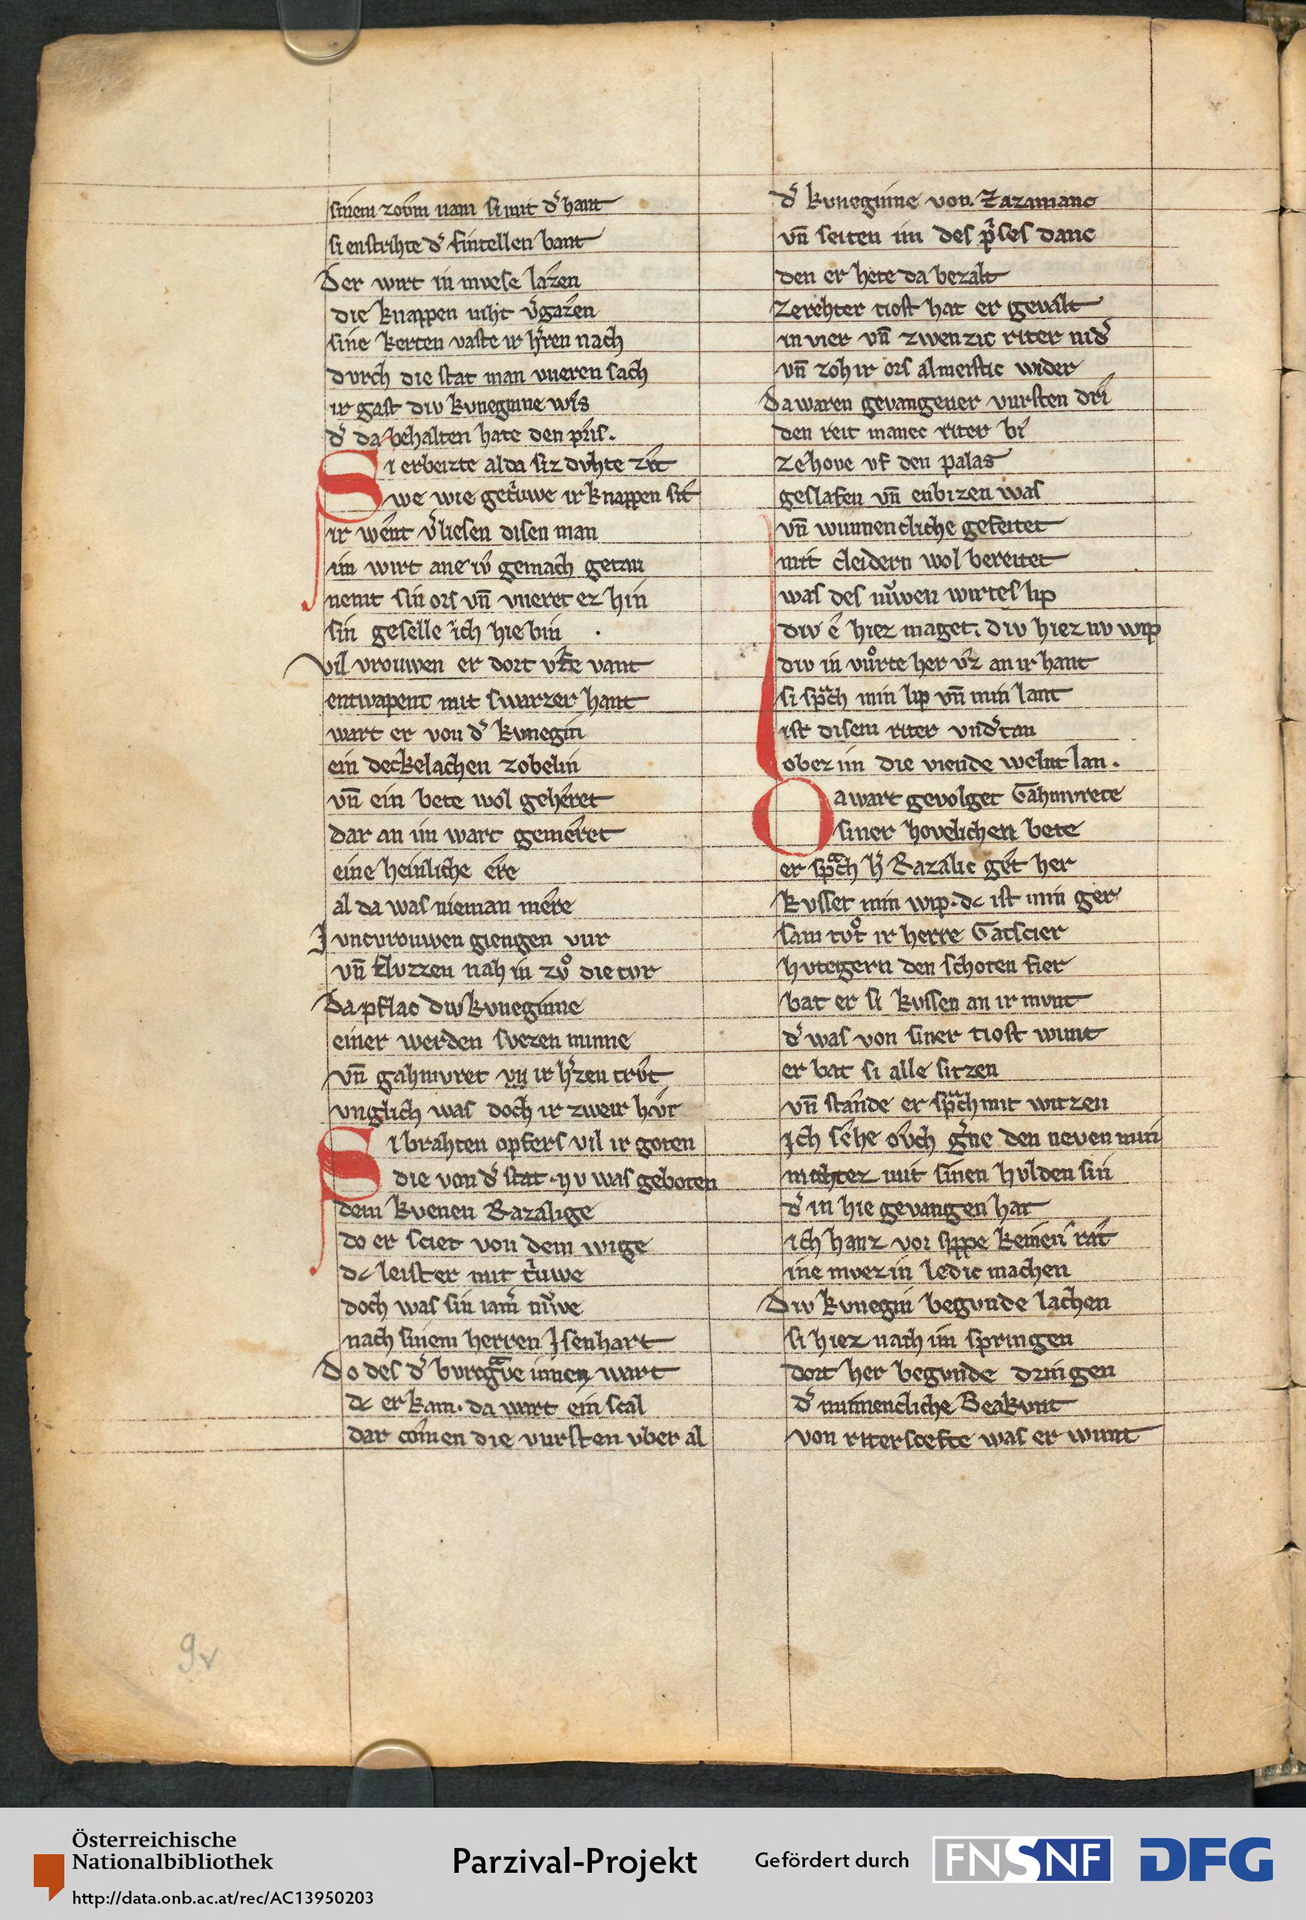 sinem zovm nam si mit d̾ hant
si enstrihte d̾ fintellen bant
Der wirt in mvese lazen
die knappen niht v̾gazen
sine kerten vaste ir h̾ren nach
dvrch die stat man vueren sach
ir gast div kvneginne wis
d̾ da behalten hate den pris.
Si erbeizte alda siz dvhte zit
we wie getriwe ir knappen sit
ir wênt v̾liesen disen man
im wirt ane iv gemach getan
nemt sin ors vn̄ vueret ez hin
sin geselle ich hie bin
vil vrouwen er dort vffe vant
entwapent mit swarzer hant
wart er von d̾ kvnegin
ein deckelachen zobelin
vn̄ ein bete wol geheret
dar an im wart gemêret
eine heinliche ere
al da was nieman mêre
Ivncvrouwen giengen vur
vn̄ sluzzen nah in zvͦ die tvr
Da pflac div kvneginne
einer werden svezen minne
vn̄ gahmvret vn̄ ir h̾zen trvt
vnglich was doch ir zweir hvt
Si brahten opfers vil ir goten
die von d̾ stat · nv was geboten
dem kvenen Razalige
do er sciet von dem wige
dc leister mit triwe
doch was sin iam̾ nuwe
nach sinem herren Isenhart
Do des d̾ burcgᵃve innen wart
dc er kam · da wart ein scal
dar comen die vursten vber al
d̾ kvneginne von Zazamanc
vn̄ seiten im des p̾ses danc
den er hete da bezalt
zerehter tiost hat er gevalt
in vier vn̄ zwenzic riter nid̾
vn̄ zoh ir ors almeistic wider
Da waren gevangener vursten dri
den reit manec riter bi
zehove vf den palas
geslafen vn̄ enbizen was
vn̄ wunnencliche gefeitet
mit cleidern wol bereitet
was des nuwen wirtes lip
div ê hiez maget. div hiez nv wip
div in vuͦrte her vz an ir hant
si spᵃch min lip vn̄ min lant
ist disem riter vnd̾tan
obez im die viende welnt lan ·
Da wart gevolget Gahmvrete
siner hovelichen bete
er spᵃch h̾ Razalic get her
kvsset min wip · dc ist min ger
sam tvͦt ir herre Gatscier
hvtegern den schoten fier
bat er si kvssen an ir mvnt
d̾ was von siner tiost wunt
er bat si alle sitzen
vn̄ stande er spᵃch mit witzen
Ich sêhe ovch g̾ne den neven min
mohtez mit sinen hvlden sin
d̾ in hie gevangen hat
ich hanz vor sippe keinen rat
ine mvez in ledic machen
Div kvnegin begvnde lachen
si hiez nach im springen
dort her begvnde dringen
d̾ minnencliche Beakvnt
von riterscefte was er wunt
9v
Österreichische
Nationalbibliothek
http://data.onb.ac.at/rec/AC13950203
Parzival-Projekt
Gefördert durch
FNSNF
DFG